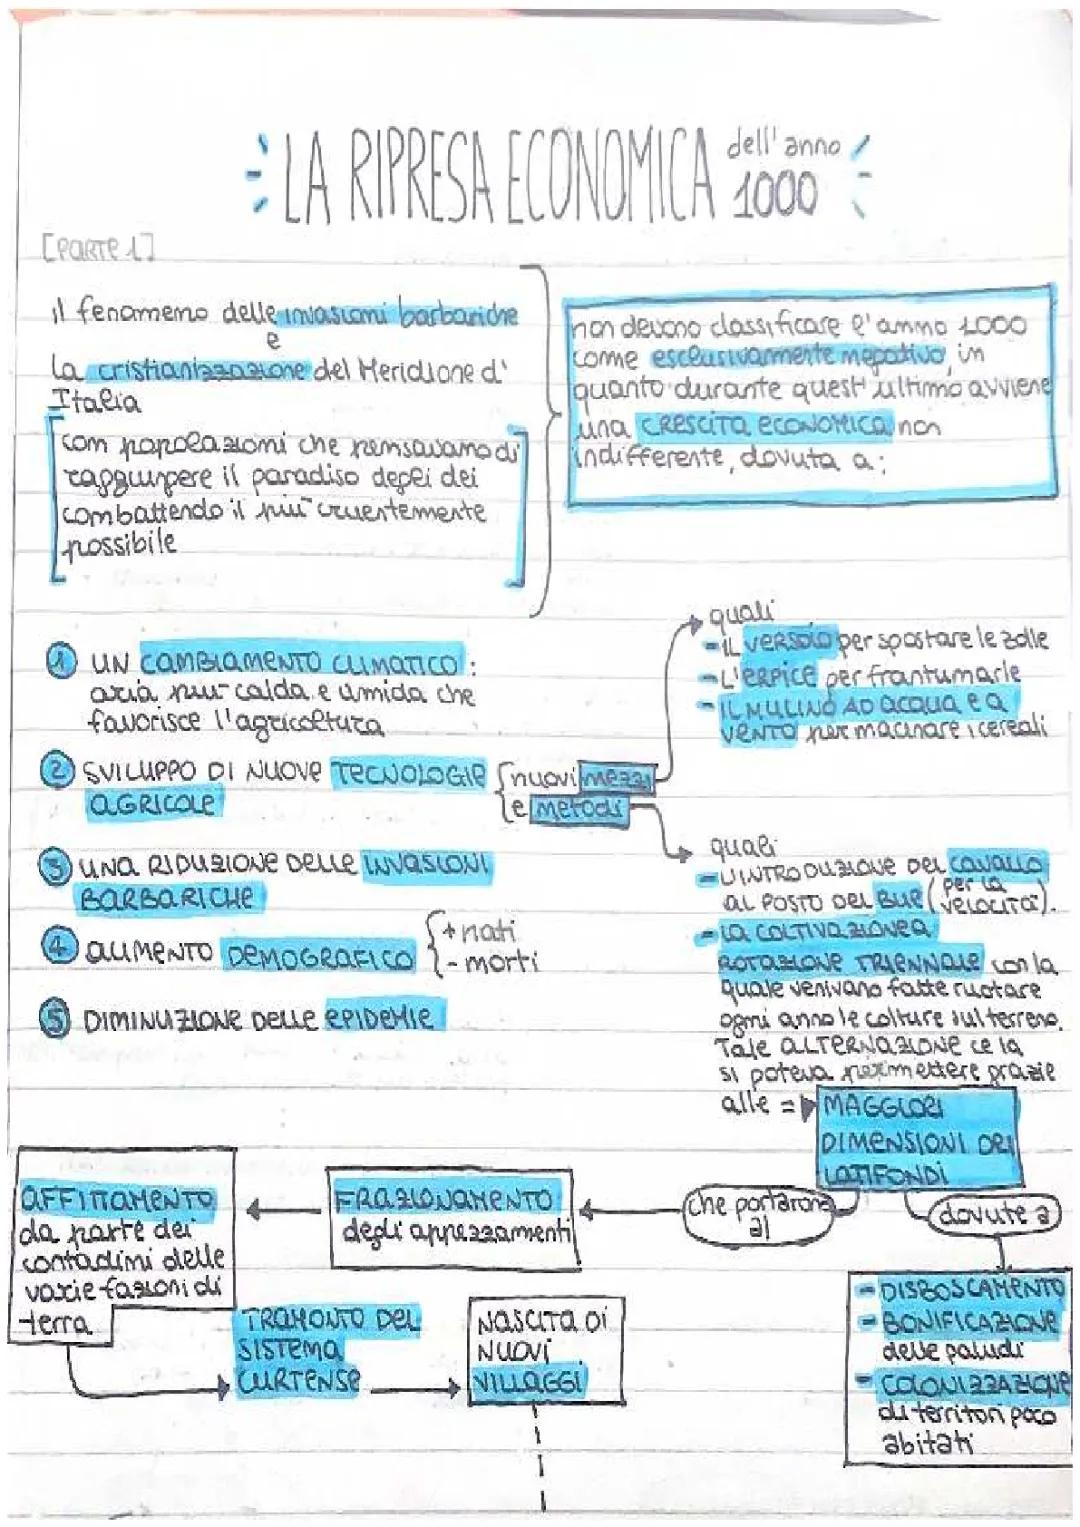 LA RIPRESA ECONOMICA dell'anno 1000
[PARTE 1]
il fenomeno delle invasioni barbariche
e
la cristianizzazione del Meridione d'
Italia
con popolazioni che pensavano di
raggiungere il paradiso degli dei
combattendo il più cruentemente
possibile
non devono classificare l'anno 1000
come esclusivamente negativo, in
quanto durante quest'ultimo avviene
una CRESCITA ECONOMICA non
indifferente, dovuta a:
1 UN CAMBIAMENTO CLIMATICO:
aria più calda e umida che
favorisce l'agricoltura
2 SVILUPPO DI NUOVE TECNOLOGIE
AGRICOLE
nuovi mezzi
e metodi
quali
- IL VERSOIO per spostare le zolle
- L'ERPICE per frantumarle
- IL MULINO AD ACQUA E A
VENTO per macinare i cereali
3 UNA RIDUZIONE DELLE INVASIONI
BARBARICHE
4 AUMENTO DEMOGRAFICO
+ nati
- morti
5 DIMINUZIONE DELLE EPIDEMIE
quali
- L'INTRODUZIONE DEL CAVALLO
AL POSTO DEL BUE (PER LA VELOCITÀ).
- LA COLTIVAZIONE A
ROTAZIONE TRIENNALE con la
quale venivano fatte ruotare
ogni anno le colture sul terreno.
Tale ALTERNAZIONE ce la
si poteva permettere grazie
alle =
MAGGIORI
DIMENSIONI DEI
LATIFONDI
che portarono
al
FRAZIONAMENTO
degli appezzamenti
AFFITTAMENTO
da parte dei
contadini delle
varie fazioni di
terra
TRAMONTO DEL
SISTEMA
CURTENSE
NASCITA DI
NUOVI
VILLAGGI
dovute a
- DISBOSCAMENTO
- BONIFICAZIONE
delle paludi
- COLONIZZAZIONE
di territori poco
abitati